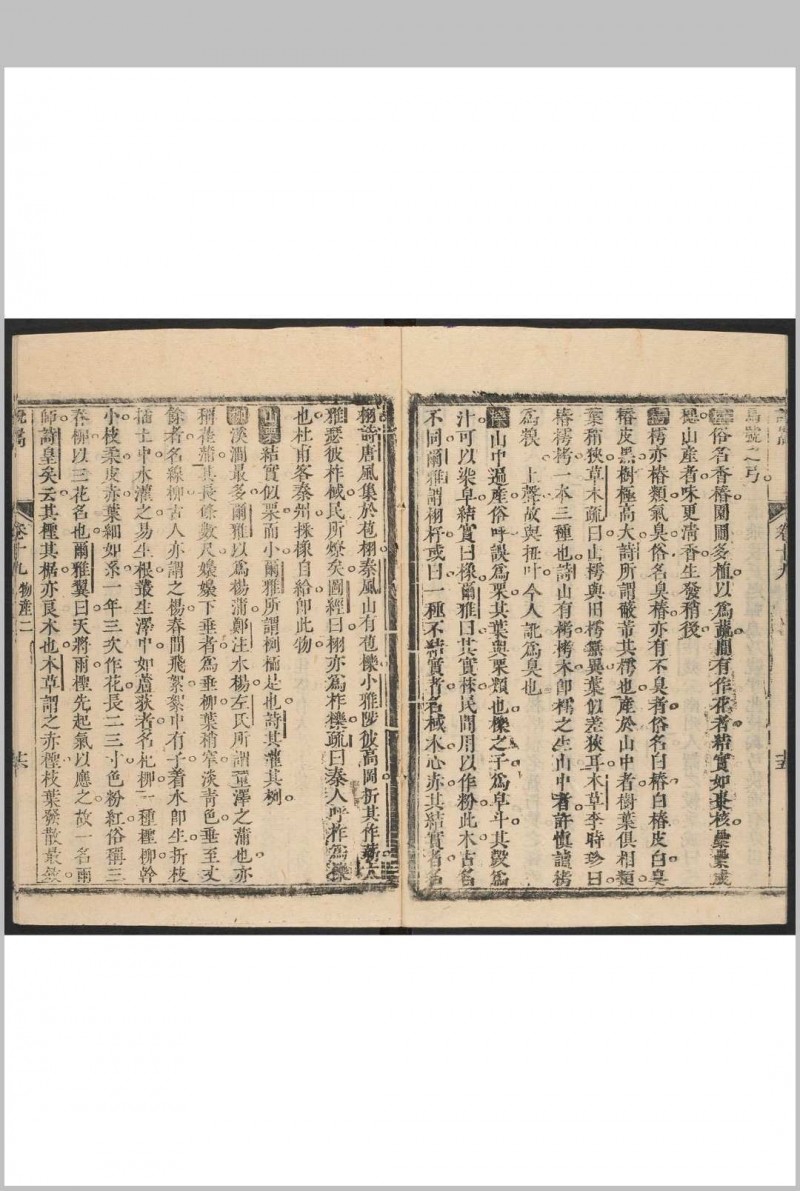 烏號之弓
俗名香椿園圃多植以為蔬間有作花者結實如棗核纍纍或
山產者味更清香生發稍後
樗亦椿類氣臭俗名臭椿亦有不臭者俗名白椿白椿皮白臭
椿皮黑樹極高大詩所謂蔽芾其樗也產於山中者樹葉俱相類
葉稍狹草木疏曰山樗與田樗無異葉似差狹耳本草李時珍曰
椿樗栲一本三種也詩山有栲栲木即樗之生山中者許慎讀栲
為糗 上聲故與杻叶今人訛為臭也
山中遍產俗呼誤為栗其葉與栗類也櫟之子為皁斗其殼為
汁可以染皁結實曰橡爾雅曰其實梂民間用以作粉此木古名
不同爾雅謂栩杼或曰一種不結實者名棫木心赤其結實者名
栩詩唐風集於苞栩秦風山有苞櫟小雅陟彼高岡折其柞薪大
雅瑟彼柞棫民所燎矣圖經曰栩亦為柞櫟疏曰秦人呼柞為櫟
也杜甫客秦州採橡自給即此物
山栗結實似栗而小爾雅所謂栵栭是也詩其灌其栵
柳溪澗最多爾雅以為楊蒲鄭注水楊左氏所謂董澤之蒲也亦
稱萑蒲其長條數尺嫋嫋下垂者為垂柳葉稍窄淡青色垂至丈
餘者名線柳古人亦謂之楊春間飛絮絮中有子着水即生折枝
插土中水灌之易生根叢生澤中如蘆荻者名杞柳一種檉柳幹
小枝柔皮赤葉細如糸一年三次作花長二三寸色粉紅俗稱三
春柳以三花名也爾雅翼曰天將雨檉先起氣以應之故一名雨
師詩皇矣云其檉其椐亦良木也本草謂之赤檉枝葉發散最效
卷十九 物產二